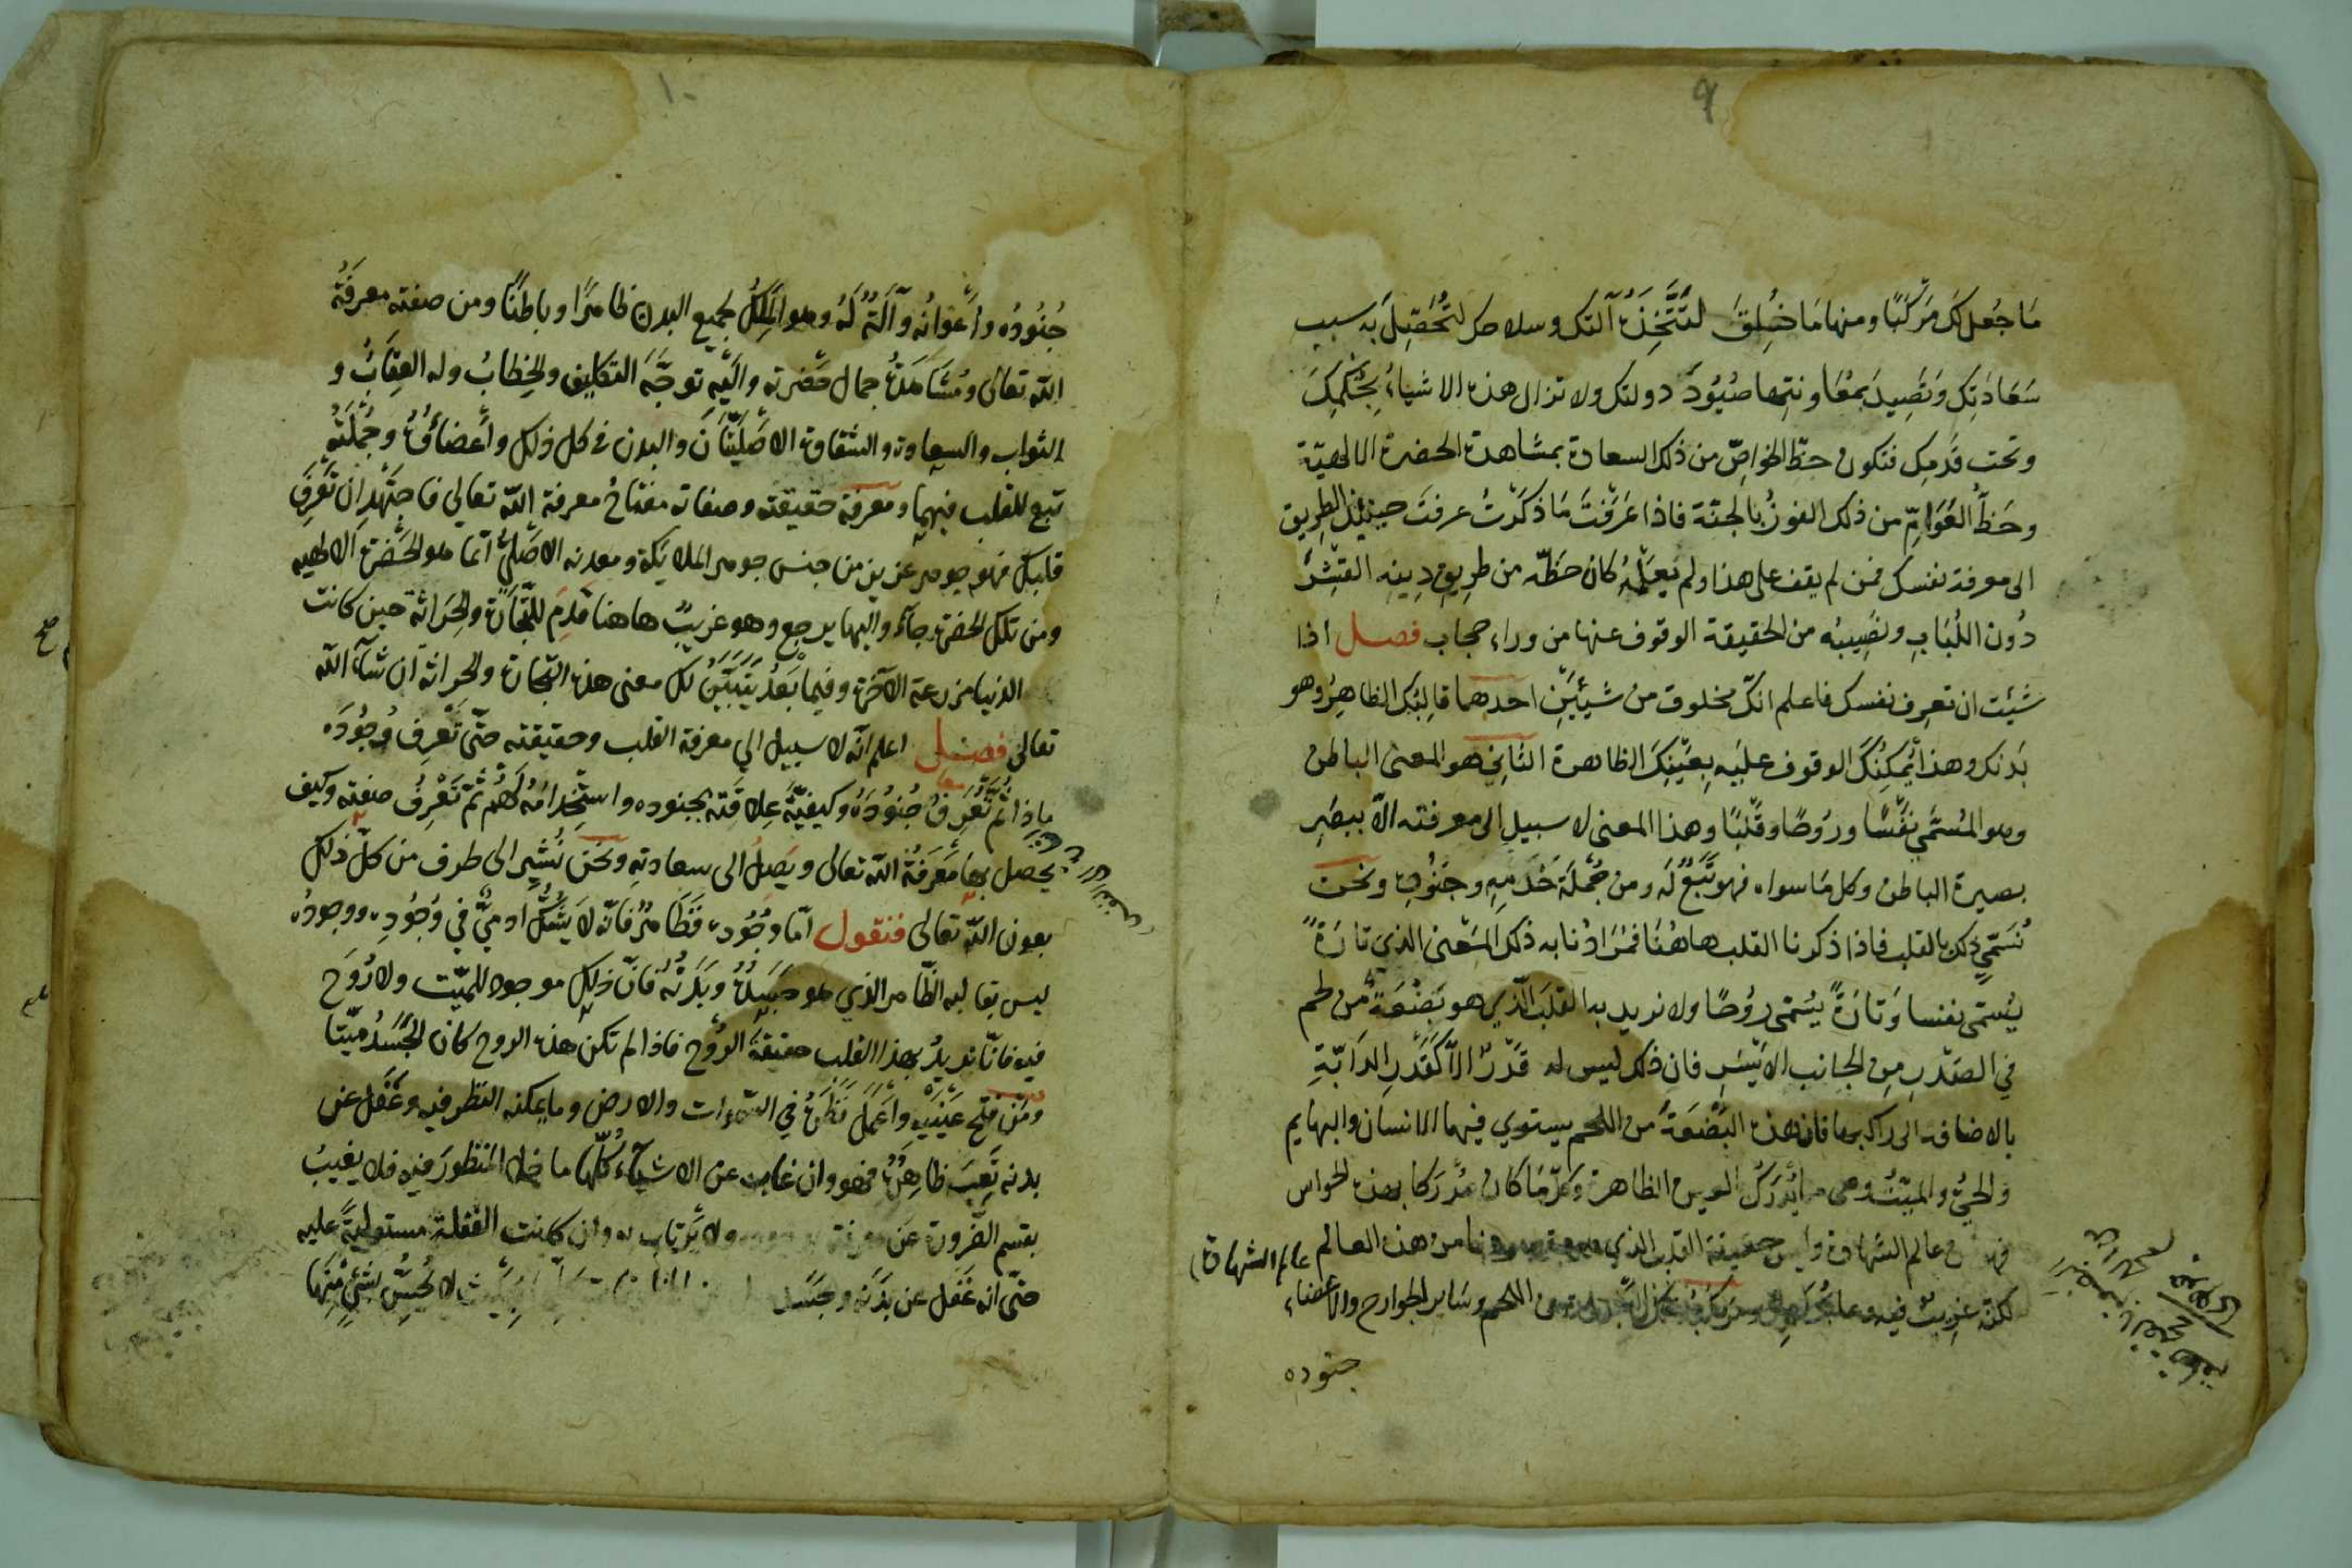 ٩
مَا جُعل لَكَ مَرْكَبًا ومنها مَا خُلِقَ لتَتَّخِذَهُ آلتك وسلاحك لتُحَصِّلَ به سبب
سَعَادَتِك وَتَصِيدَ بمُعَاونتها صُيُودَ دولتك ولا تزال هذه الاشياءُ بِحُكْمِكَ
وتحت قَدَمِك فتكون حظّ الخواصّ من ذلك السعادة بمشاهدة الحضرة الالهيّة
وحَظُّ العَوَامِّ من ذلك الفوزُ بالجنّة فاذا عَرَفْتَ مَا ذَكَرْتُ عرفتَ حينئذٍ الطريق
الى معرفة نفسك فمن لم يقف على هذا ولم يَعْلَمْهُ كان حَظّه من طريق دِينِه القِشْرَ
دُون اللُبَابِ ونَصِيبُه من الحقيقة الوقوف عنها من وراء حجاب فصل اذا
شئت ان تعرف نفسك فاعلم انك مخلوق من شيئَيْنِ احدهما قالِبُك الظاهِرُ وهو
بَدَنك وهذا يُمكِنُكَ الوقوف عليه بِعَيْنِكَ الظاهرة الثاني هو المعنى الباطن
وهو المُسَمّى نفْسًا ورُوحًا وقَلْبًا وهذا المعنى لا سبيل الى معرفته الّا ببصَرِ
بصيرة الباطن وكل مَا سواه فهو تَبَعٌ لَه ومن جُمْلَة خَدَمِهِ وجنودِه ونحن
نُسَمّي ذلك بالقلب فاذا ذكرنا القلب هاهُنا فمُرَادُنا به ذلك المَعْنى الذي تارَةً
يُسَمّى نفسا وَتارَةً يُسَمّى رُوحًا ولا نريد به القلبَ الّذي هو بَضْعَةٌ من لحم
في الصَدْرِ مِن الجانب الأيْسَرِ فان ذلك ليس له قَدْرٌ الّا كَقَدْرِ الدَابّةِ
بالاضافة الى راكبها فان هذه البَضْعَةَ من اللحم يستوي فيها الانسان والبهايم
والحيُّ والميّتُ وهي مما يُدْرَكُ بالعين الظاهرة وكلّ مَا كان مُدْرَكا بهذه الحواس
فهو من عالم الشهادة وليس حقيقة القلب الذي من هذه العالم عالم الشهادة
لكنّه غريبٌ فيه من اللحم وسَاير الجوارح والأعضاء
جنوده
١٠
جُنُودُه واَعْوَانُه وآلَتُه لَهُ وهو المَلِكُ لجميع البدن ظاهرًا وباطنًا ومن صفته معرفَةُ
الله تعالى ومُشَاهَدَةُ جمال حَضْرته والَيْهِ توجّهَ التكليف والخِطابُ وله العِقَابُ و
الثواب والسعادة والشقاوة الاصْلِيّتَان والبدن في كل ذلك وأَعضاؤُهُ وجُمْلَتُه
تبع للقلب فيها ومعرفة حقيقته وصفاته مفتاحُ معرفة الله تعالى فاجتَهِد ان تَعْرِفَ
قلبك فهو جوهر عزيز من جنس جوهر الملايكة ومعدنه الاصْليُّ انّما هو الحَضْرَة الالهيه
ومن تلك الحضرة جآء واليها يرجع وهو غريبٌ هاهنا قَدِمَ للتِّجَارَةِ والحِرَاثة حين كانت
الدنيا مزرعة الآخرة وفيما بَعْدُ يَتَبَيَّنُ لك معنى هذه التجارة والحراثة ان شآء الله
تعالى فصل اعلم انّه لا سبيل الى معرفة القلب وحقيقته حتّى تَعْرِفَ وُجُودَه
ثُمّ تَعْرِفُ جُنُودَهُ وكيفيّةَ عِلاقَته بجنوده واستِخْدامُهُ لَهُم ثمّ تَعْرِفُ صفته وكيف
يحصل بها مَعْرَفةُ الله تعالى ويَصِلُ الى سعادتِه ونحن نُشِيرُ الى طرف من كلّ ذلك
بعون الله تعالى فنقول امّا وُجُودُه فَظَاهرٌ فانّه لا يَشُكُّ ادميٌّ في وُجُودِه ووجودُه
ليس بقالبه الظّاهر الذي هو جَسَدُهُ وبَدَنُهُ فانّ ذلك موجود للميّت ولا رُوحَ
فيه فانّا نريدُ بهذا القلب حقيقةَ الرُّوح فاذا لم تكن هذه الروح كان الجَسَدُ ميّتا
ومَن فتح عَيْنَيْهِ واَعْمَلَ نَظَرَهُ في السّموات والارض وما يمكنه النظر فيه وغَفَل عن
بدنه ظاهِرَهُ فهو وان غاب عن الاشيآء كُلّها ما خلا المنظورَ فيه فلا يغيبُ
بقسم الضّرورة عَن معرفة ولا يَرْتاب به وان كانت الغفلة مستوليةً عليه
حتّى انه غَفَل عن بَدَنه وجَسَده لا يُحِسُّ بشَيْءٍ مِنْهَا